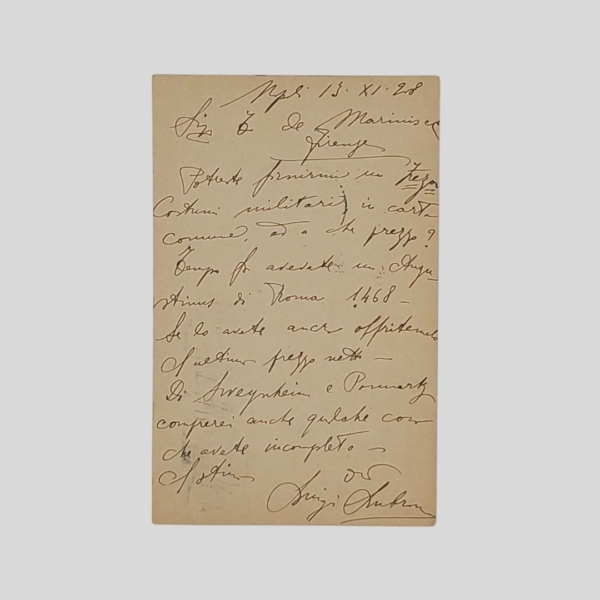 Npli 13. XI. 28
Sig T. de Marinis e C
Firenze
Potreste fornirmi un
Costumi militari, in carta
comune, ed a che prezzo?
Tempo fa avevate un Augu-
stinus di Roma 1468 -
Se lo avete ancora offritemelo
all'ultimo prezzo netto -
Di Sweynheim e Pannartz
comprerei anche qualche cosa
che avete incompleto -
Luigi Lubrano